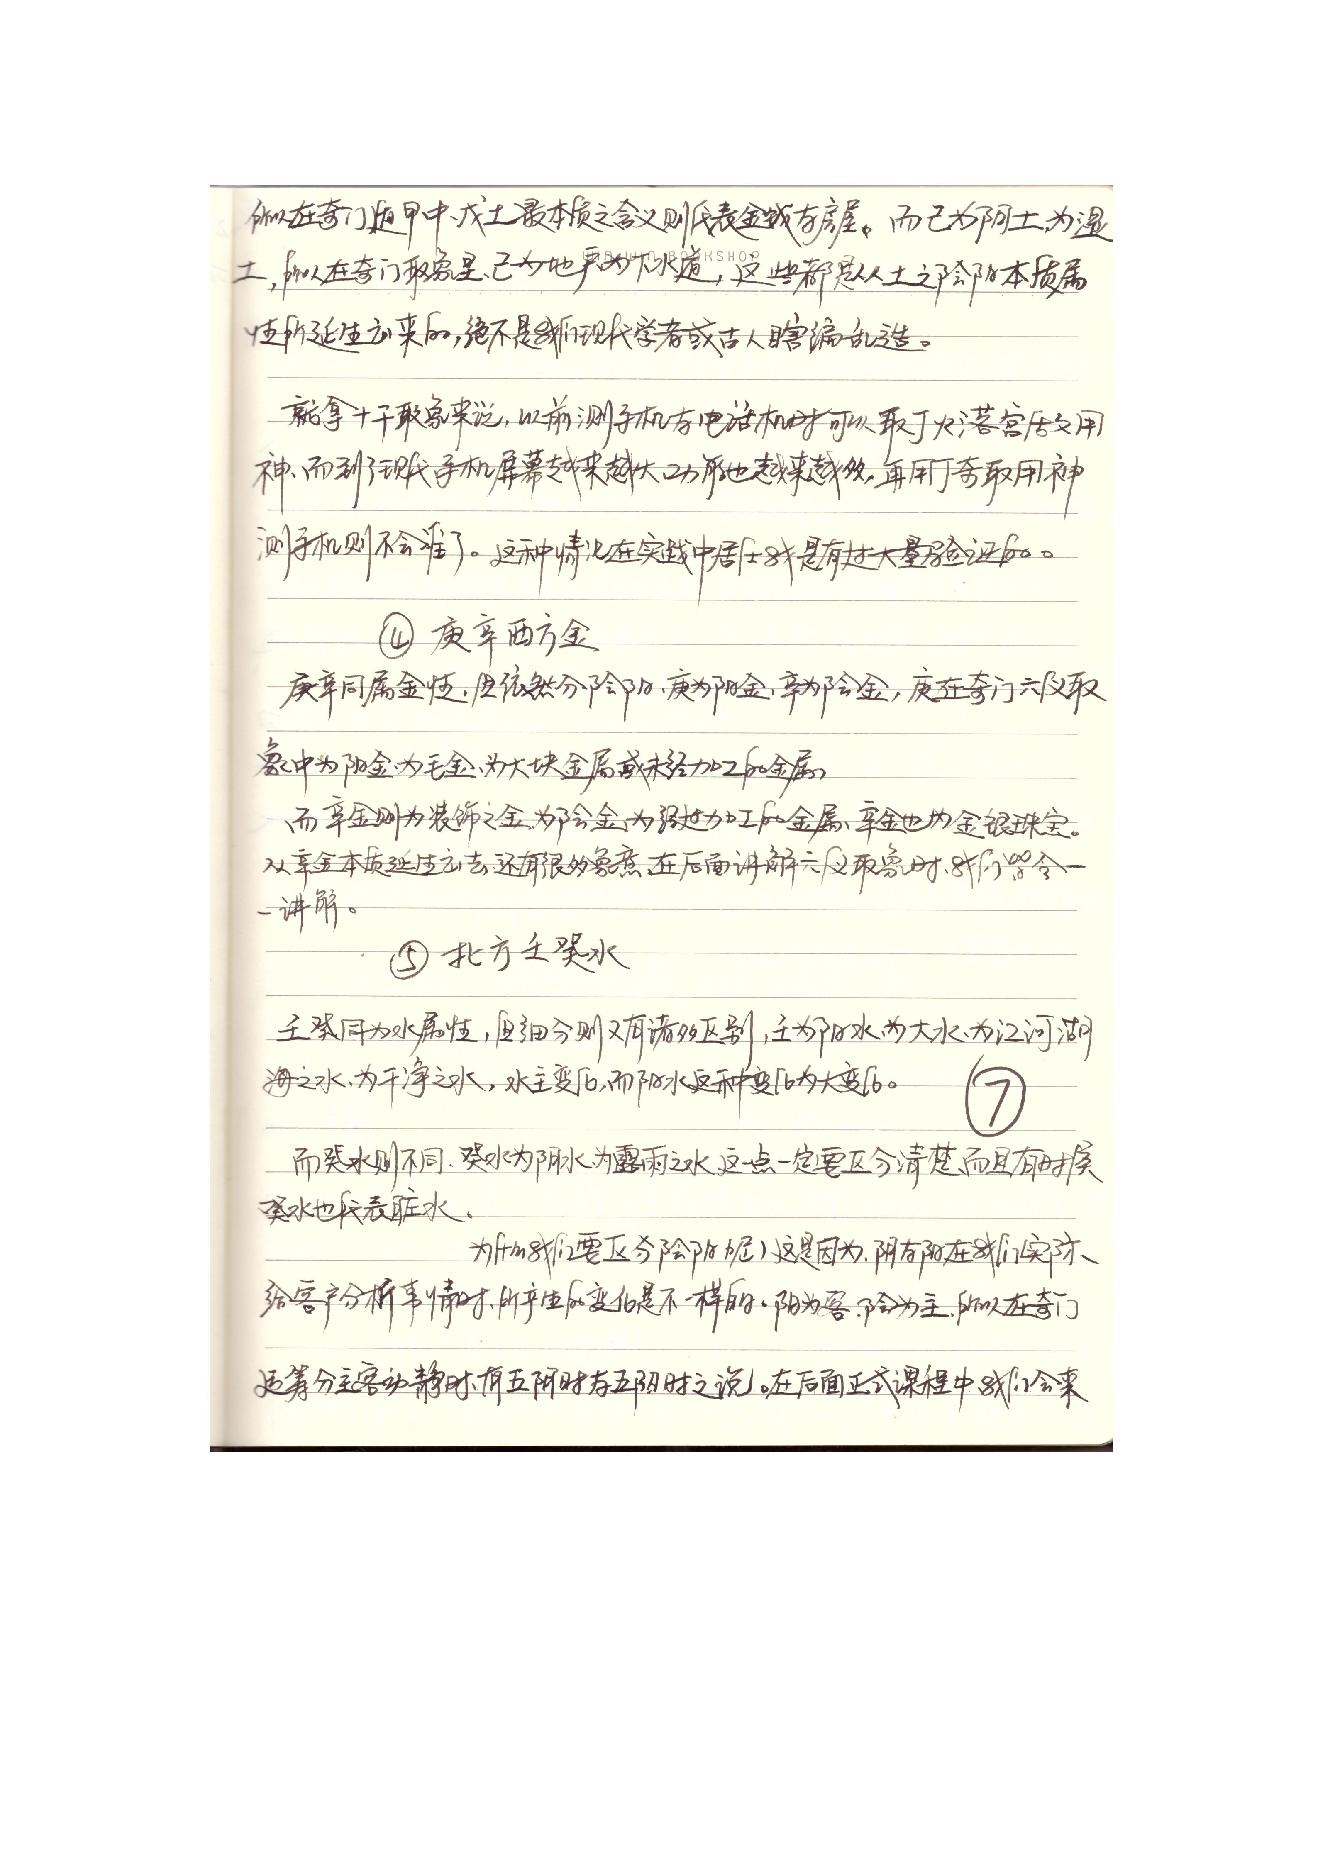 所以在奇门遁甲中、戊土最本质之含义则代表金钱与房屋。而己为阴土、为湿
BOOKSHOP
土，所以在奇门取象里、己为地户为下水道，这些都是从土之阴阳本质属
性所延生出来的，绝不是我们现代学者或古人瞎编乱造。
就拿十干取象来说，以前测手机与电话机时可以取丁火落宫居之用
神、而到了现代手机屏幕越来越大功能也越来越多，再用丁奇取用神
测手机则不会准了。这种情况在实践中居士我是有过大量验证的。
④ 庚辛西方金
庚辛同属金性、但依然分阴阳、庚为阳金、辛为阴金，庚在奇门六仪取
象中为阳金、为毛金、为大块金属或未经加工的金属，
而辛金则为装饰之金、为阴金、为经过加工的金属、辛金也为金银珠宝。
从辛金本质延生出去、还有很多象意、在后面讲解六仪取象时、我们会一
一讲解。
⑤ 北方壬癸水
壬癸同为水属性，但细分则又有诸多区别，壬为阳水、为大水、为江河湖
海之水、为干净之水，水主变化，而阳水这种变化为大变化。
⑦
而癸水则不同、癸水为阴水、为露雨之水、这一点一定要区分清楚、而且有时候
癸水也代表脏水、
为什么我们要区分阴阳呢？这是因为、阴与阳在我们实际、
给客户分析事情时、所产生的变化是不一样的。阳为客、阴为主、所以在奇门
运筹分主客动静时、有五阳时与五阴时之说。在后面正式课程中我们会来